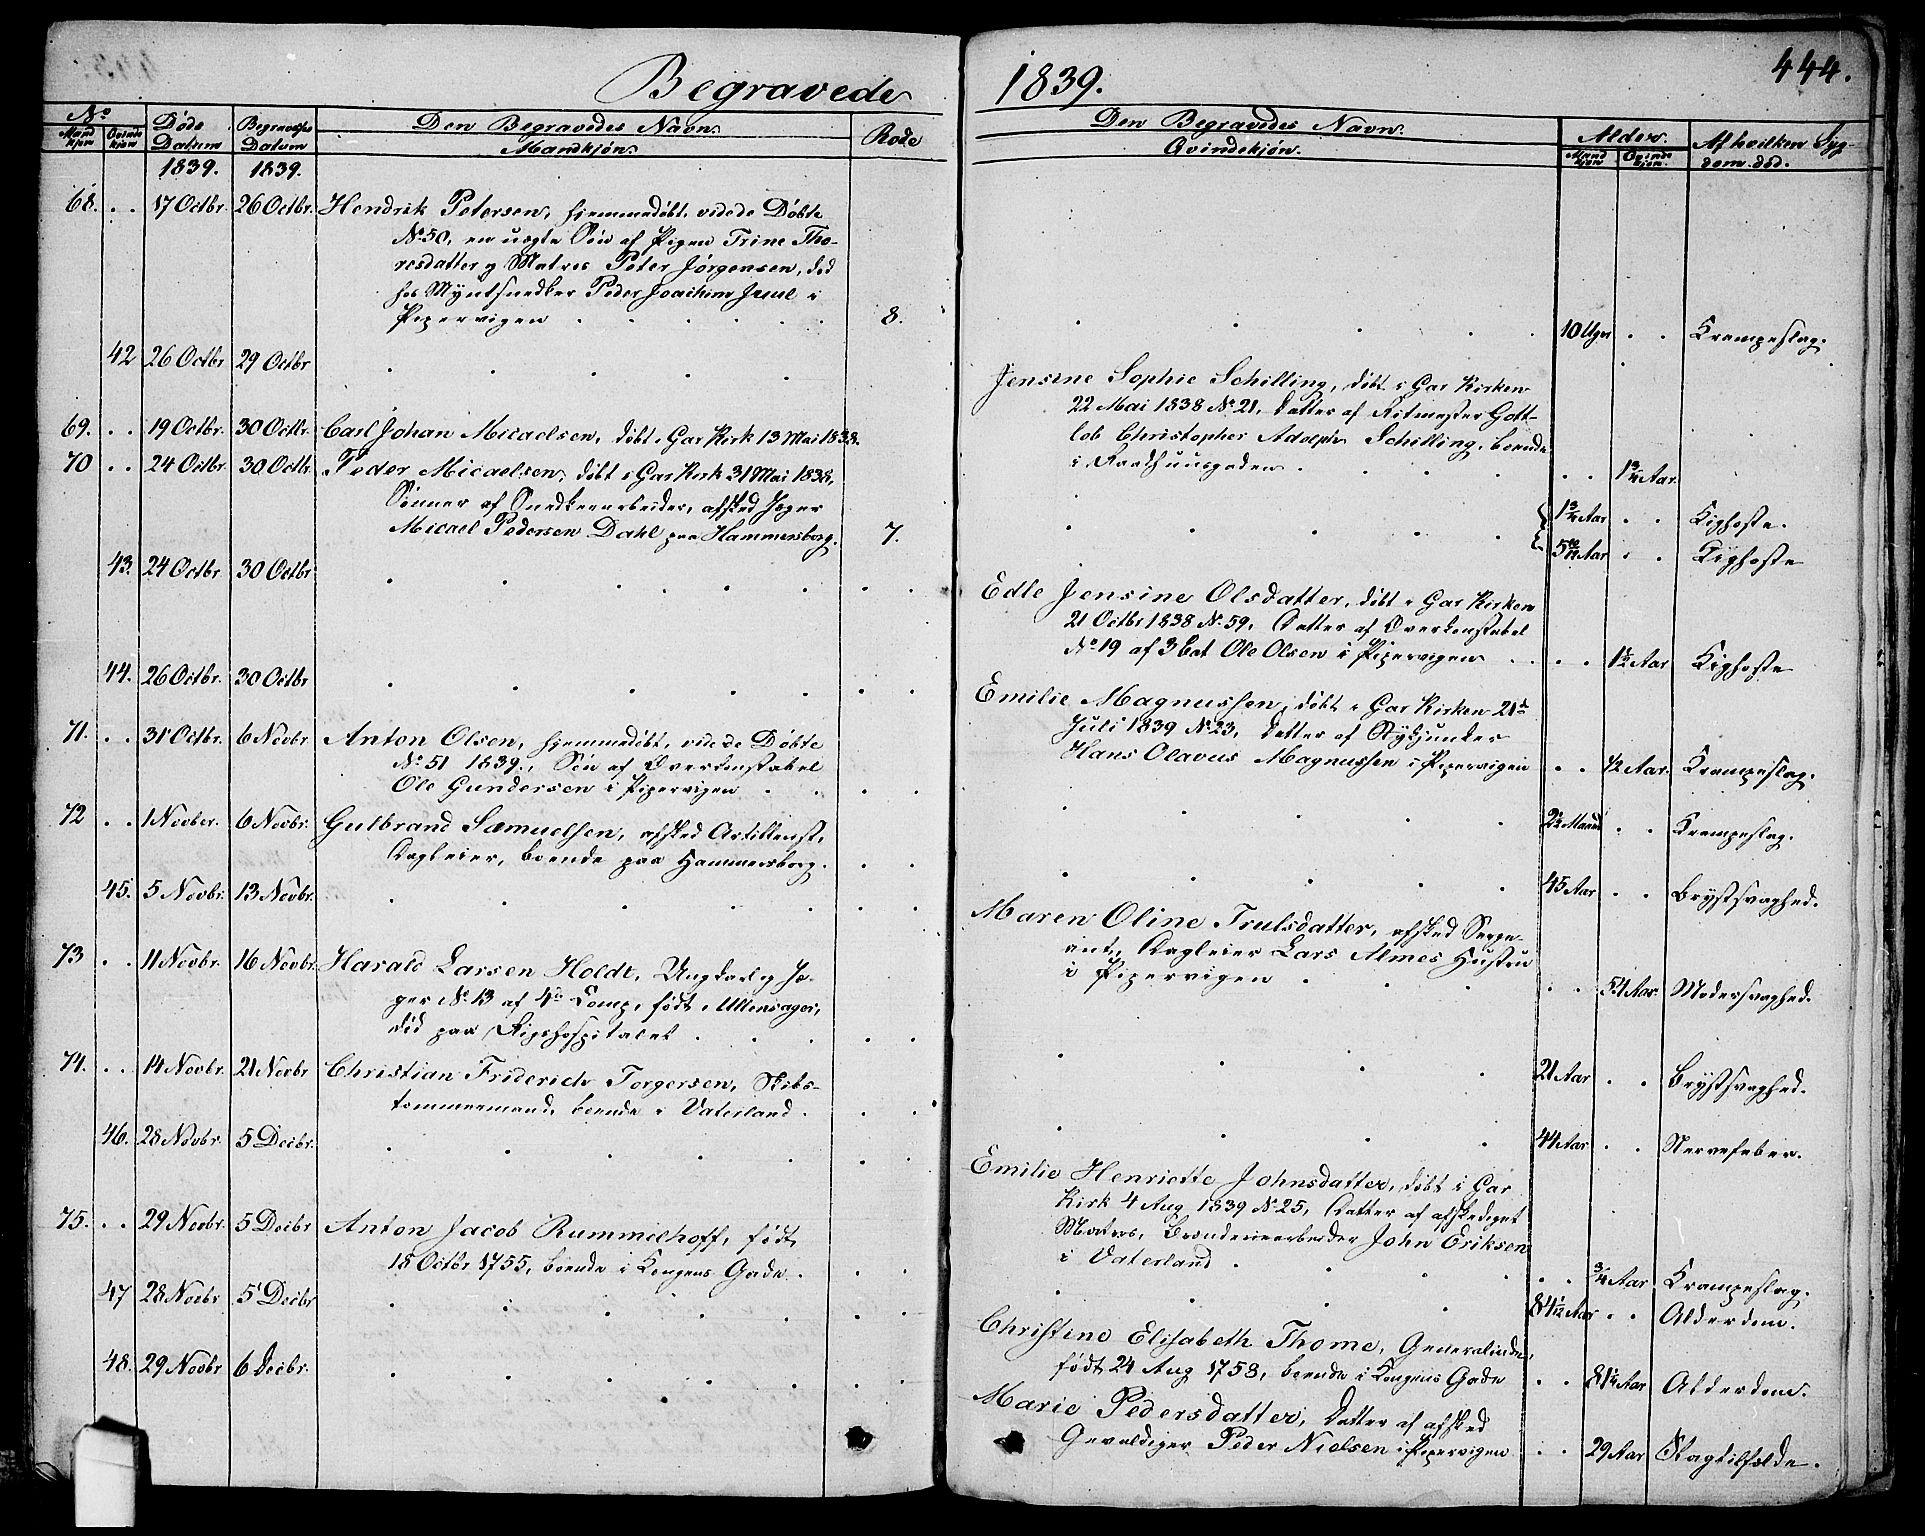 444.
Begravede 1839.
No
Mandkjøn Qvindekjøn
Døde Datum
Begravelses Datum
Den Begravedes Navn.
Mandkjøn.
Rode
Den Begravedes Navn.
Qvindekjøn.
Alder.
Mandkjøn Qvindekjøn.
Af hvilken Sygdom død.
1839. 1839.
68. . . 17 Octbr. 26 Octbr. Hendrik Petersen, hjemmedøbt, vide de Døbte
No 50, en uægte Søn af Pigen Trine Tho-
resdatter og Matros Peter Jørgensen, død
hos Myntsnedker Peder Joachim Juul i
Pipervigen 8. 10 Uger . . Krampeslag.
42 26 Octbr 29 Octbr
Jensine Sophie Schilling, døbt i Gar Kirken
22 Mai 1838 No 21, Datter af Ritmester Gott-
lob Christopher Adolph Schilling, boende
i Raadhuusgaden . . 1 3/4 Aar.
69. . . 19 Octbr. 30 Octbr. Carl Johan Micaelsen, døbt i Gar Kirk 13 Mai 1838. 1 3/4 Aar . . Kighoste.
70 . . 24 Octbr. 30 Octbr. Peder Micaelsen, døbt i Gar Kirk 31 Mai 1838,
Sønner af Snedkerarbeider, afsked Jæger
Micael Pedersen Dahl paa Hammersborg. 7. Aar . . Kighoste
43. 24 Octbr. 30 Octbr
Edle Jensine Olsdatter, døbt i Gar Kirken
21 Octbr 1838 No 59, Datter af Overkonstabel
No 19 af 3 Bat Ole Olsen i Pipervigen . . Aar Kighoste
44. 26 Octbr. 30 Octbr
Emilie Magnussen, døbt i Gar Kirken 21de
Juli 1839 No 23, Datter af Stykjunker
Hans Olavus Magnussen i Pipervigen . . 1/2 Aar. Krampeslag.
71. . . 31 Octbr. 6 Novbr. Anton Olsen, hjemmedøbt, vide de Døbte
No 51 1839., Søn af Overkonstabel
Ole Gundersen i Pipervigen 2 1/2 Maaned . . Krampeslag.
72 . . 1 Novber. 6 Novbr. Gulbrand Samuelsen, afsked Artillerist,
Dagleier, boende paa Hammersborg. 45 Aar . . Brystsvaghed.
45. 5 Novbr. 13 Novbr.
Maren Oline Trulsdatter, afsked Serge-
ant, Dagleier Lars Almes Hustru
i Pipervigen . . 51 Aar. Modersvaghed.
73 . . 11 Novbr. 16 Novbr. Harald Larsen Holdt, Ungkarl og Jæ-
ger No 13 af 4de Comp, født i Ullensager,
død paa Rigshospitalet 21 Aar . . Brystsvaghed.
74. . . 14 Novbr. 21 Novbr Christian Friderich Torgersen, Skibs-
tømmermand, boende i Vaterland. 44 Aar . . Nervefeber.
46. 28 Novbr. 5 Decbr.
Emilie Henriette Johnsdatter, døbt i Gar
Kirk 4 Aug 1839 No 25, Datter af afskediget
Matros, Brænderiearbeider John Eriksen
i Vaterland . . 3/4 Aar Krampeslag.
75. . . 29 Novbr. 5 Decbr Anton Jacob Rummelhoff, født
15 Octbr 1755, boende i Kongens Gade. 84 1/12 Aar . . Alderdom.
47 28 Novbr 5 Decbr
Christine Elisabeth Thome, Generalinde,
født 24 Aug 1758, boende i Kongens Gade . . 81 1/4 Aar Alderdom.
48. 29 Novbr 6 Decbr.
Marie Pedersdatter, Datter af afsked
Gevaldiger Peder Nielsen i Pipervigen . . 29 Aar Slagtilfælde.